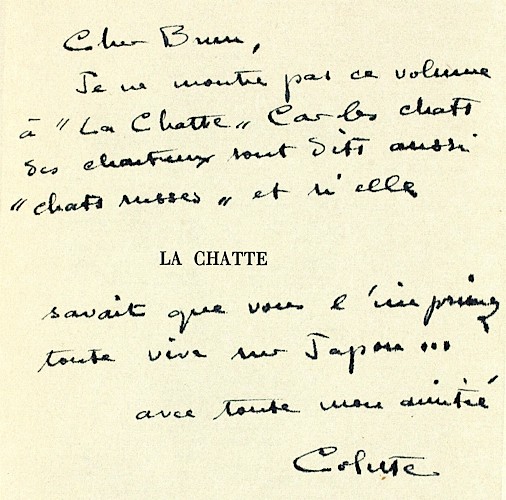 Cher Brun,
Je ne montre pas ce volume
à "La Chatte" Car les chats
des chartreux sont dits aussi
"chats russes" et si elle
LA CHATTE
savait que vous l'imprimez
toute vive sur Japon...
avec toute mon amitié
Colette